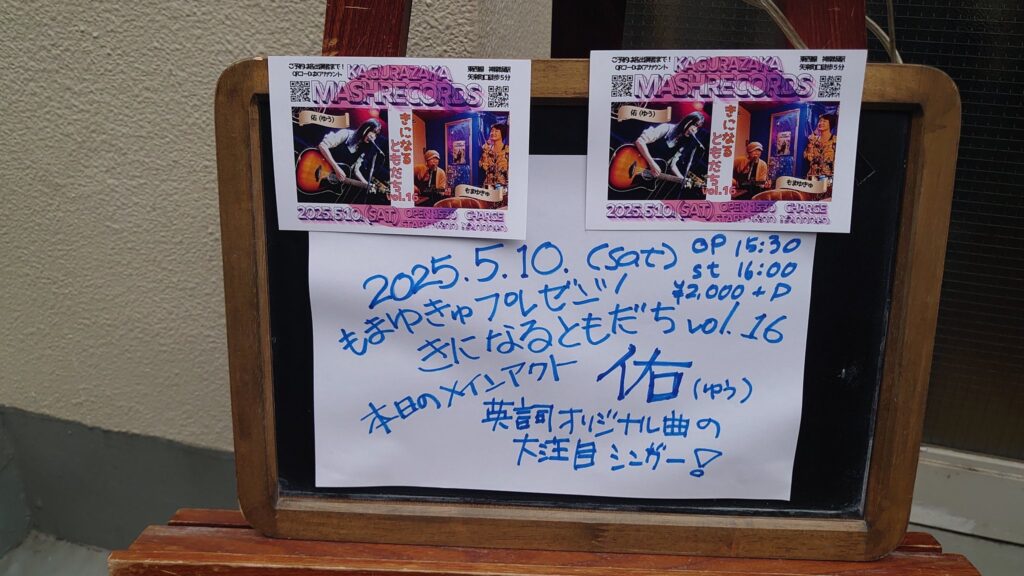 ご予約は各出演者まで!
QRコードはXアカウント
東西線 神楽坂駅
矢来町口徒歩5分
KAGURAZAKA
MASHRECORDS
佑(ゆう)
きになる
ともだち
vol.16
もまゆきゅ
2025.5.10.(SAT)
CHARGE
ご予約は各出演者まで!
QRコードはXアカウント
東西線 神楽坂駅
矢来町口徒歩5分
KAGURAZAKA
MASHRECORDS
佑(ゆう)
きになる
ともだち
vol.16
もまゆきゅ
2025.5.10.(SAT)
CHARGE
2025.5.10.(sat)
OP 15:30
st 16:00
¥2,000+D
もまゆきゅプレゼンツ
きになるともだちvol.16
本日のメインアクト 佑(ゆう)
英詞オリジナル曲の
大注目シンガー!